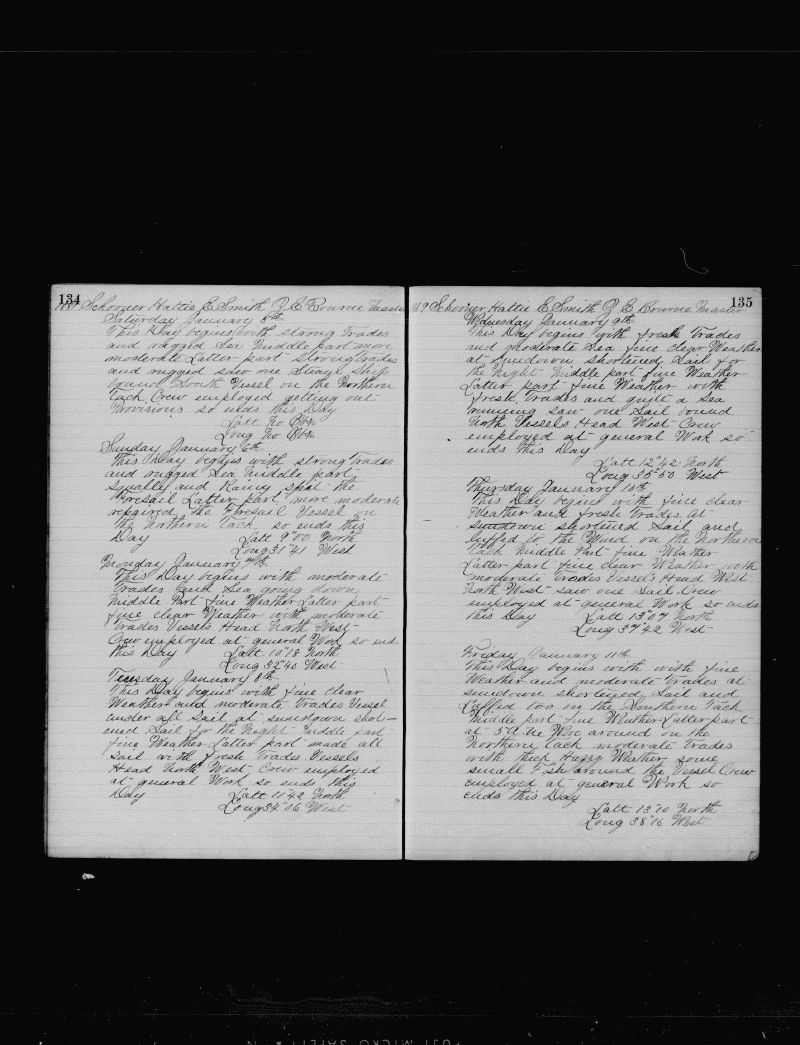 134
1889 Schooner Hattie E Smith J E Bourne Master
Saturday January 5th
This Day begins with strong trades
and rugged Sea Middle part more
moderate Latter part strong trades
and rugged saw one Steam Ship
bound South Vessel on the Northern
Tack Crew employed getting out
Provisions so ends this Day
Latt No Obs
Long No Obs
Sunday January 6th
This Day begins with strong trades
and rugged Sea Middle part
Squally and Rainy split the
Foresail Latter part more moderate
repaired the Foresail Vessel on
the Northern tack so ends this
Day Latt 9°00 North
Long 31°41 West
Monday January 7th
This Day begins with moderate
trades and Sea going down
Middle Part fine Weather Latter part
fine clear Weather with moderate
trades Vessels Head North West
Crew employed at general Work so ends
this Day Latt 10°18 North
Long 32°40 West
Tuesday January 8th
This Day begins with fine clear
Weather and moderate trades Vessel
under all Sail at sundown short-
ened Sail for the Night Middle part
fine Weather Latter part made all
sail with fresh trades Vessels
Head North West Crew employed
at general Work so ends this
Day Latt 11°42 North
Long 34°06 West
135
1889 Schooner Hattie E Smith J E Bourne Master
Wednesday January 9th
This Day begins with fresh trades
and moderate Sea fine clear Weather
at Sundown shortened Sail for
the Night Middle part fine Weather
Latter part fine Weather with
fresh trades and quite a Sea
running saw one Sail bound
North Vessels Head West Crew
employed at general Work so
ends this Day
Latt 12°42 North
Long 35°50 West
Thursday January 10th
This Day begins with fine clear
Weather and fresh trades. At
sundown shortened Sail and
luffed to the Wind on the Northern
Tack Middle Part fine Weather
Latter part fine clear Weather with
moderate trades Vessels Head West
North West saw one Sail Crew
employed at general Work so ends
this Day Latt 13°07 North
Long 37°42 West
Friday January 11th
This Day begins with with fine
Weather and moderate trades at
sundown shortened Sail and
Luffed too on the Southern Tack
Middle part fine Weather Latter part
at 5 A.M. Wore around on the
Northern tack moderate trades
with thick Hazy Weather some
small Fish around the Vessel Crew
employed at general Work so
ends this Day
Latt 13°10 North
Long 38°16 West